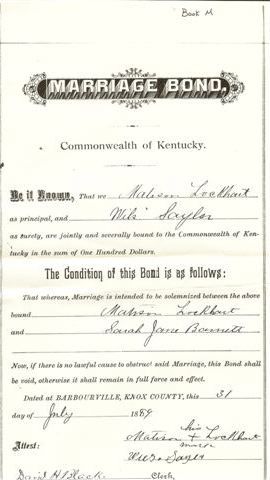 Book M
MARRIAGE BOND,
Commonwealth of Kentucky.
Be it Known, That we Matison Lockhart
as principal, and Wils Saylor
as surety, are jointly and severally bound to the Commonwealth of Ken-
tucky in the sum of One Hundred Dollars.
The Condition of this Bond is as follows:
That whereas, Marriage is intended to be solemnized between the above
bound Matison Lockhart
and Sarah Jane Barnett
Now, if there is no lawful cause to obstruct said Marriage, this Bond shall
be void, otherwise it shall remain in full force and effect.
Dated at BARBOURVILLE, KNOX COUNTY, this 31
day of July 1889
his
Matison + Lockhart
mark
Attest:
David H Black Clerk,